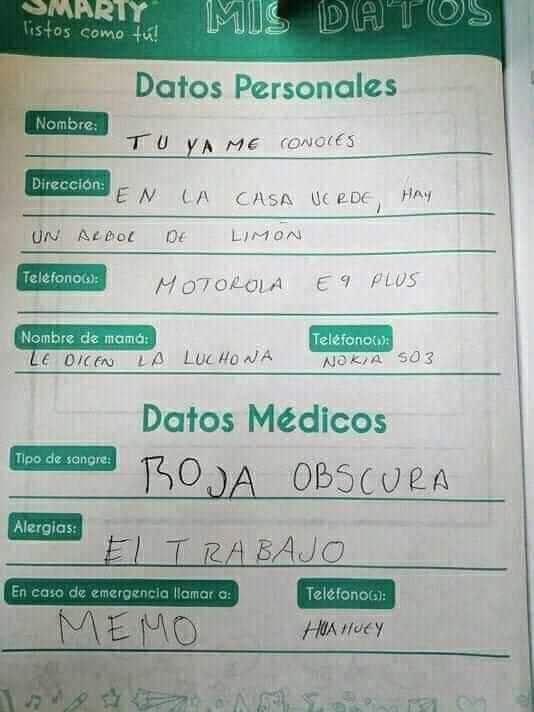 SMARTY
listos como tú!
MIS DATOS
Datos Personales
Nombre: TU YA ME CONOCES
Dirección: EN LA CASA VERDE, HAY
UN ARBOL DE LIMÓN
Teléfono(s): MOTOROLA E9 PLUS
Nombre de mamá: LE DICEN LA LUCHONA Teléfono(s): NOKIA 503
Datos Médicos
Tipo de sangre: ROJA OBSCURA
Alergias: El TRABAJO
En caso de emergencia llamar a: MEMO Teléfono(s): HUAHUEY